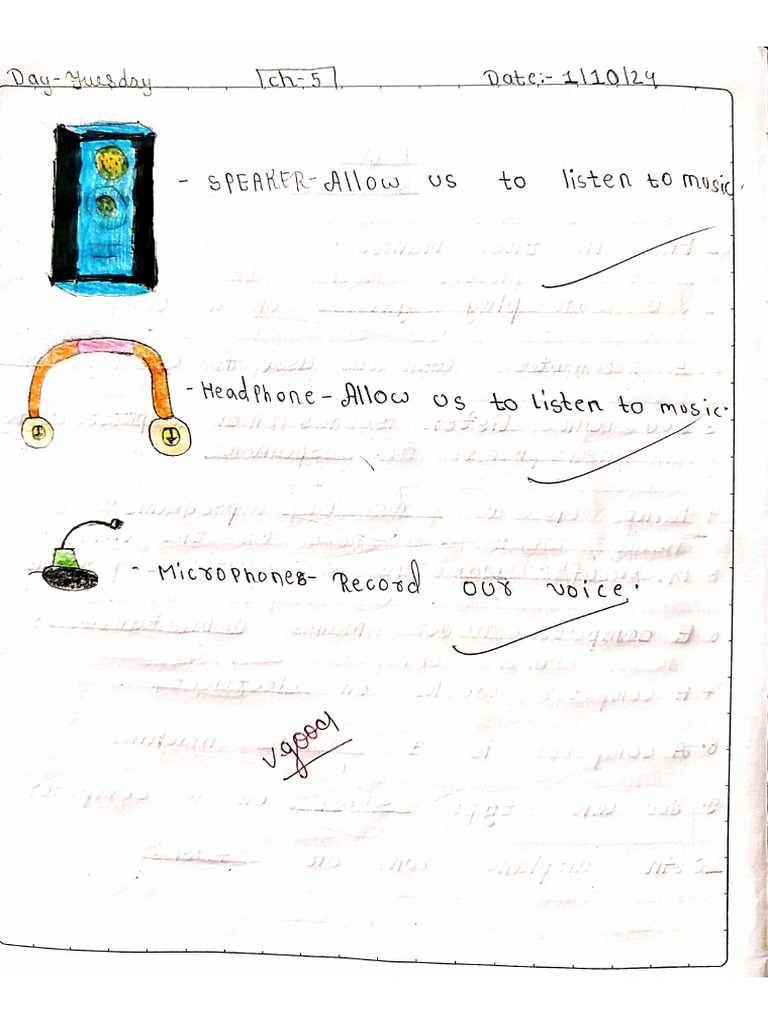 Day-Tuesday Ch-5 Date:- 1/10/24
- SPEAKER- Allow us to listen to music.
- Headphone - Allow us to listen to music.
- Microphones- Record our voice.
v.good